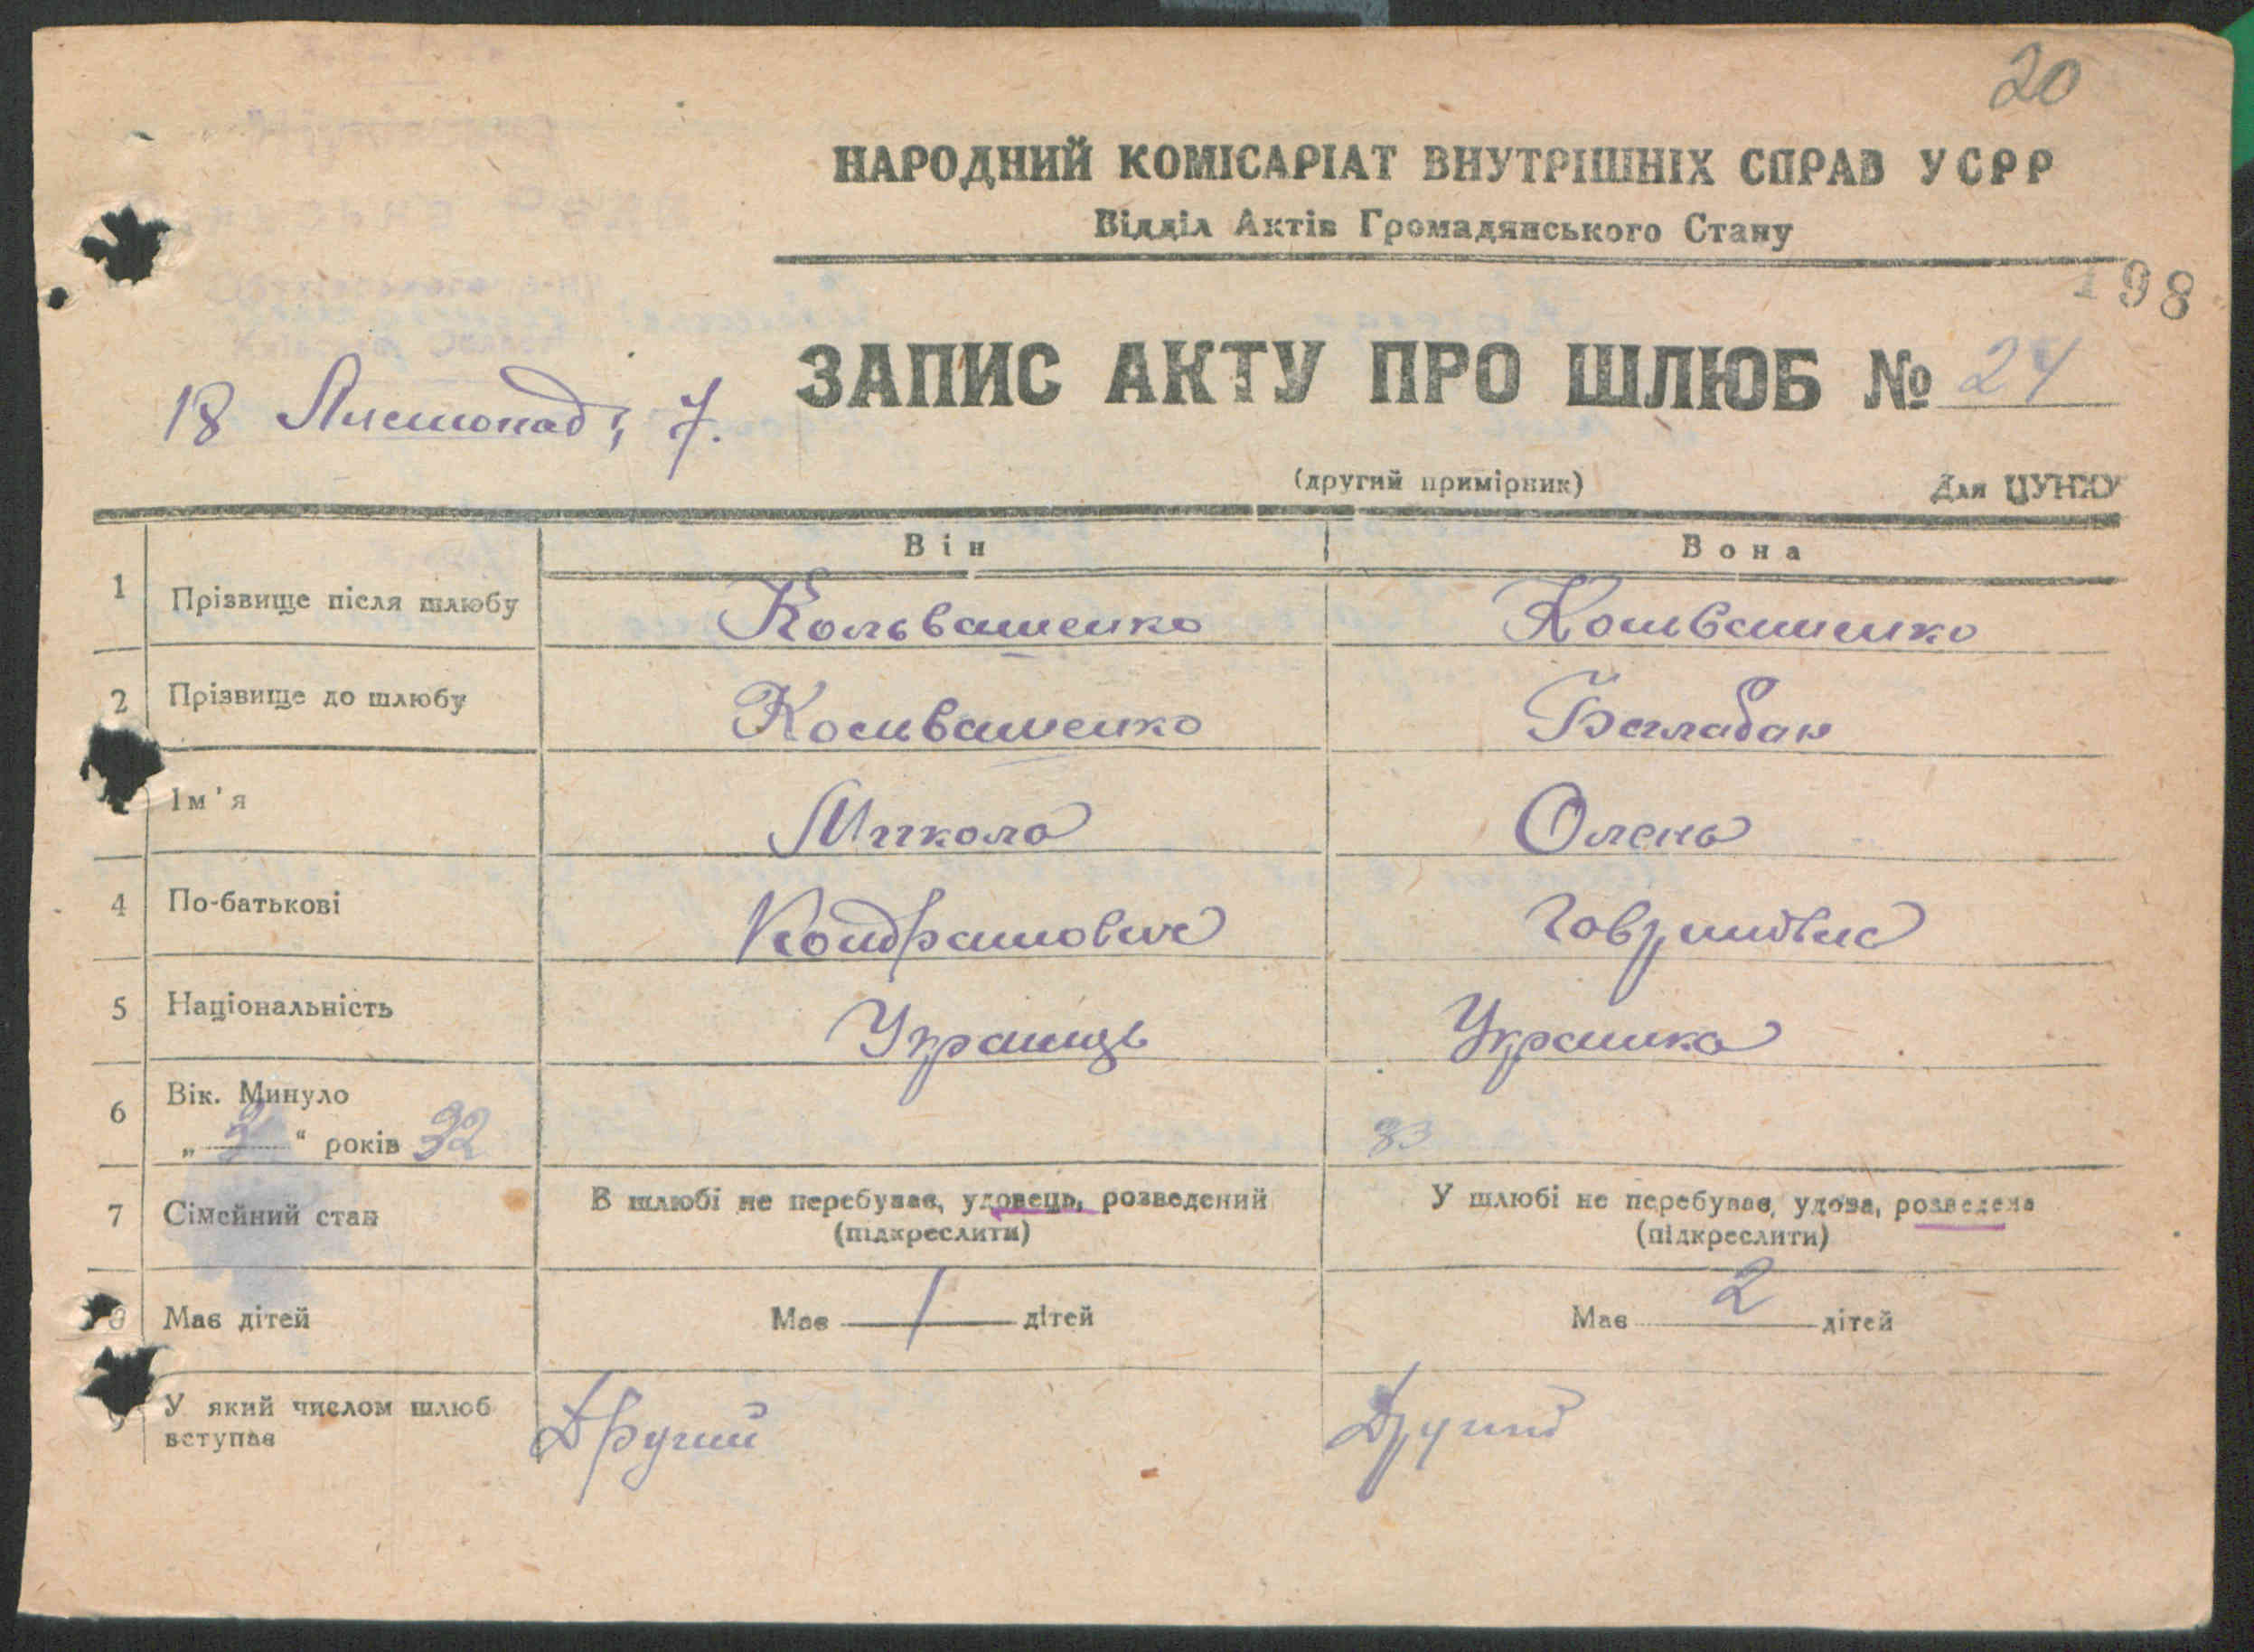 20
НАРОДНИЙ КОМІСАРІАТ ВНУТРІШНІХ СПРАВ УСРР
Відділ Актів Громадянського Стану
198
18 Листопад, 7.
ЗАПИС АКТУ ПРО ШЛЮБ № 24
(другий примірник) Для ЦУНХУ
Він Вона
1 Прізвище після шлюбу
2 Прізвище до шлюбу Балабан
Ім'я Микола Олена
4 По-батькові Кондратович
5 Національність Украинць Украинка
6 Вік. Минуло
„ " років 32 33
7 Сімейний стан В шлюбі не перебував, удовець, розведений У шлюбі не перебував, удова, розведена
(підкреслити) (підкреслити)
8 Має дітей Має 1 дітей Має 2 дітей
9 У який числом шлюб вступає Другий Другий